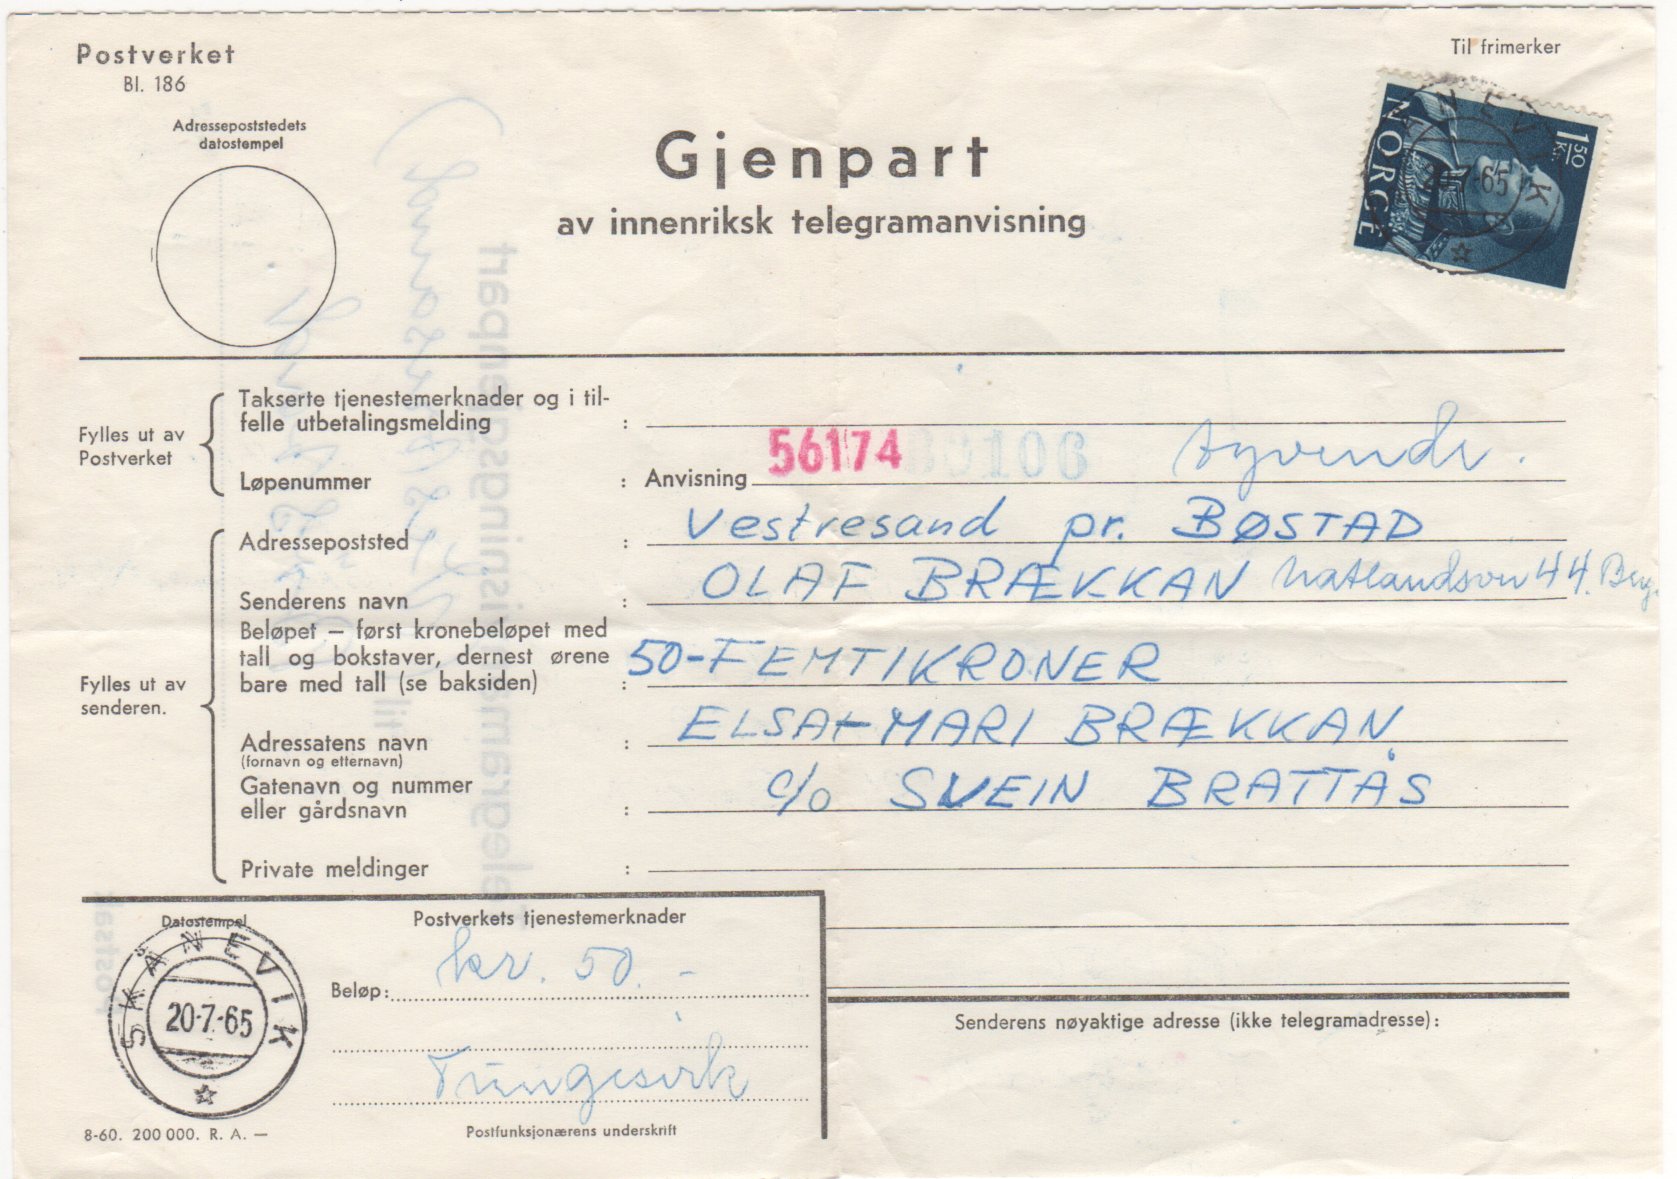 Postverket
Bl. 186
Til frimerker
Adressepoststedets
datostempel
Gjenpart
av innenriksk telegramanvisning
NORGE
1 50 kr.
Takserte tjenestemerknader og i til-
felle utbetalingsmelding :
Fylles ut av
Postverket
Løpenummer : Anvisning 56174 syvende.
Adressepoststed : Vestresand pr. BØSTAD
Senderens navn : OLAF BRÆKKAN Natlandsvn 44. Berg.
Beløpet – først kronebeløpet med
tall og bokstaver, dernest ørene
bare med tall (se baksiden) : 50-FEMTIKRONER
Fylles ut av
senderen.
Adressatens navn : ELSA-MARI BRÆKKAN
(fornavn og etternavn)
Gatenavn og nummer
eller gårdsnavn : c/o SVEIN BRATTÅS
Private meldinger :
Datostempel
SKÅNEVIK
20-7-65
Postverkets tjenestemerknader
Beløp: kr. 50.-
Tungesvik
Postfunksjonærens underskrift
Senderens nøyaktige adresse (ikke telegramadresse):
8-60. 200 000. R. A. —